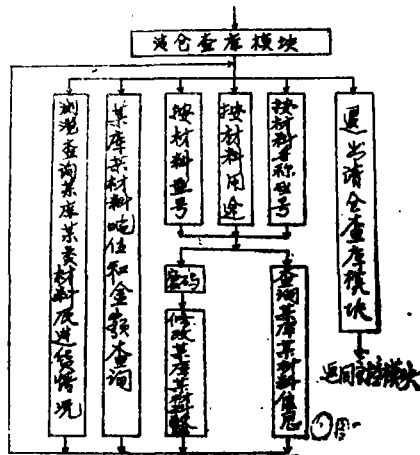 清仓查库模块
浏览查询某库某类材料及进货情况
某库某材料吨位和金额查询
按材料型号
按材料用途
按材料名称型号
退出清仓查库模块
密码
修改某库某材料
查询某库某材料信息
返回主控模块